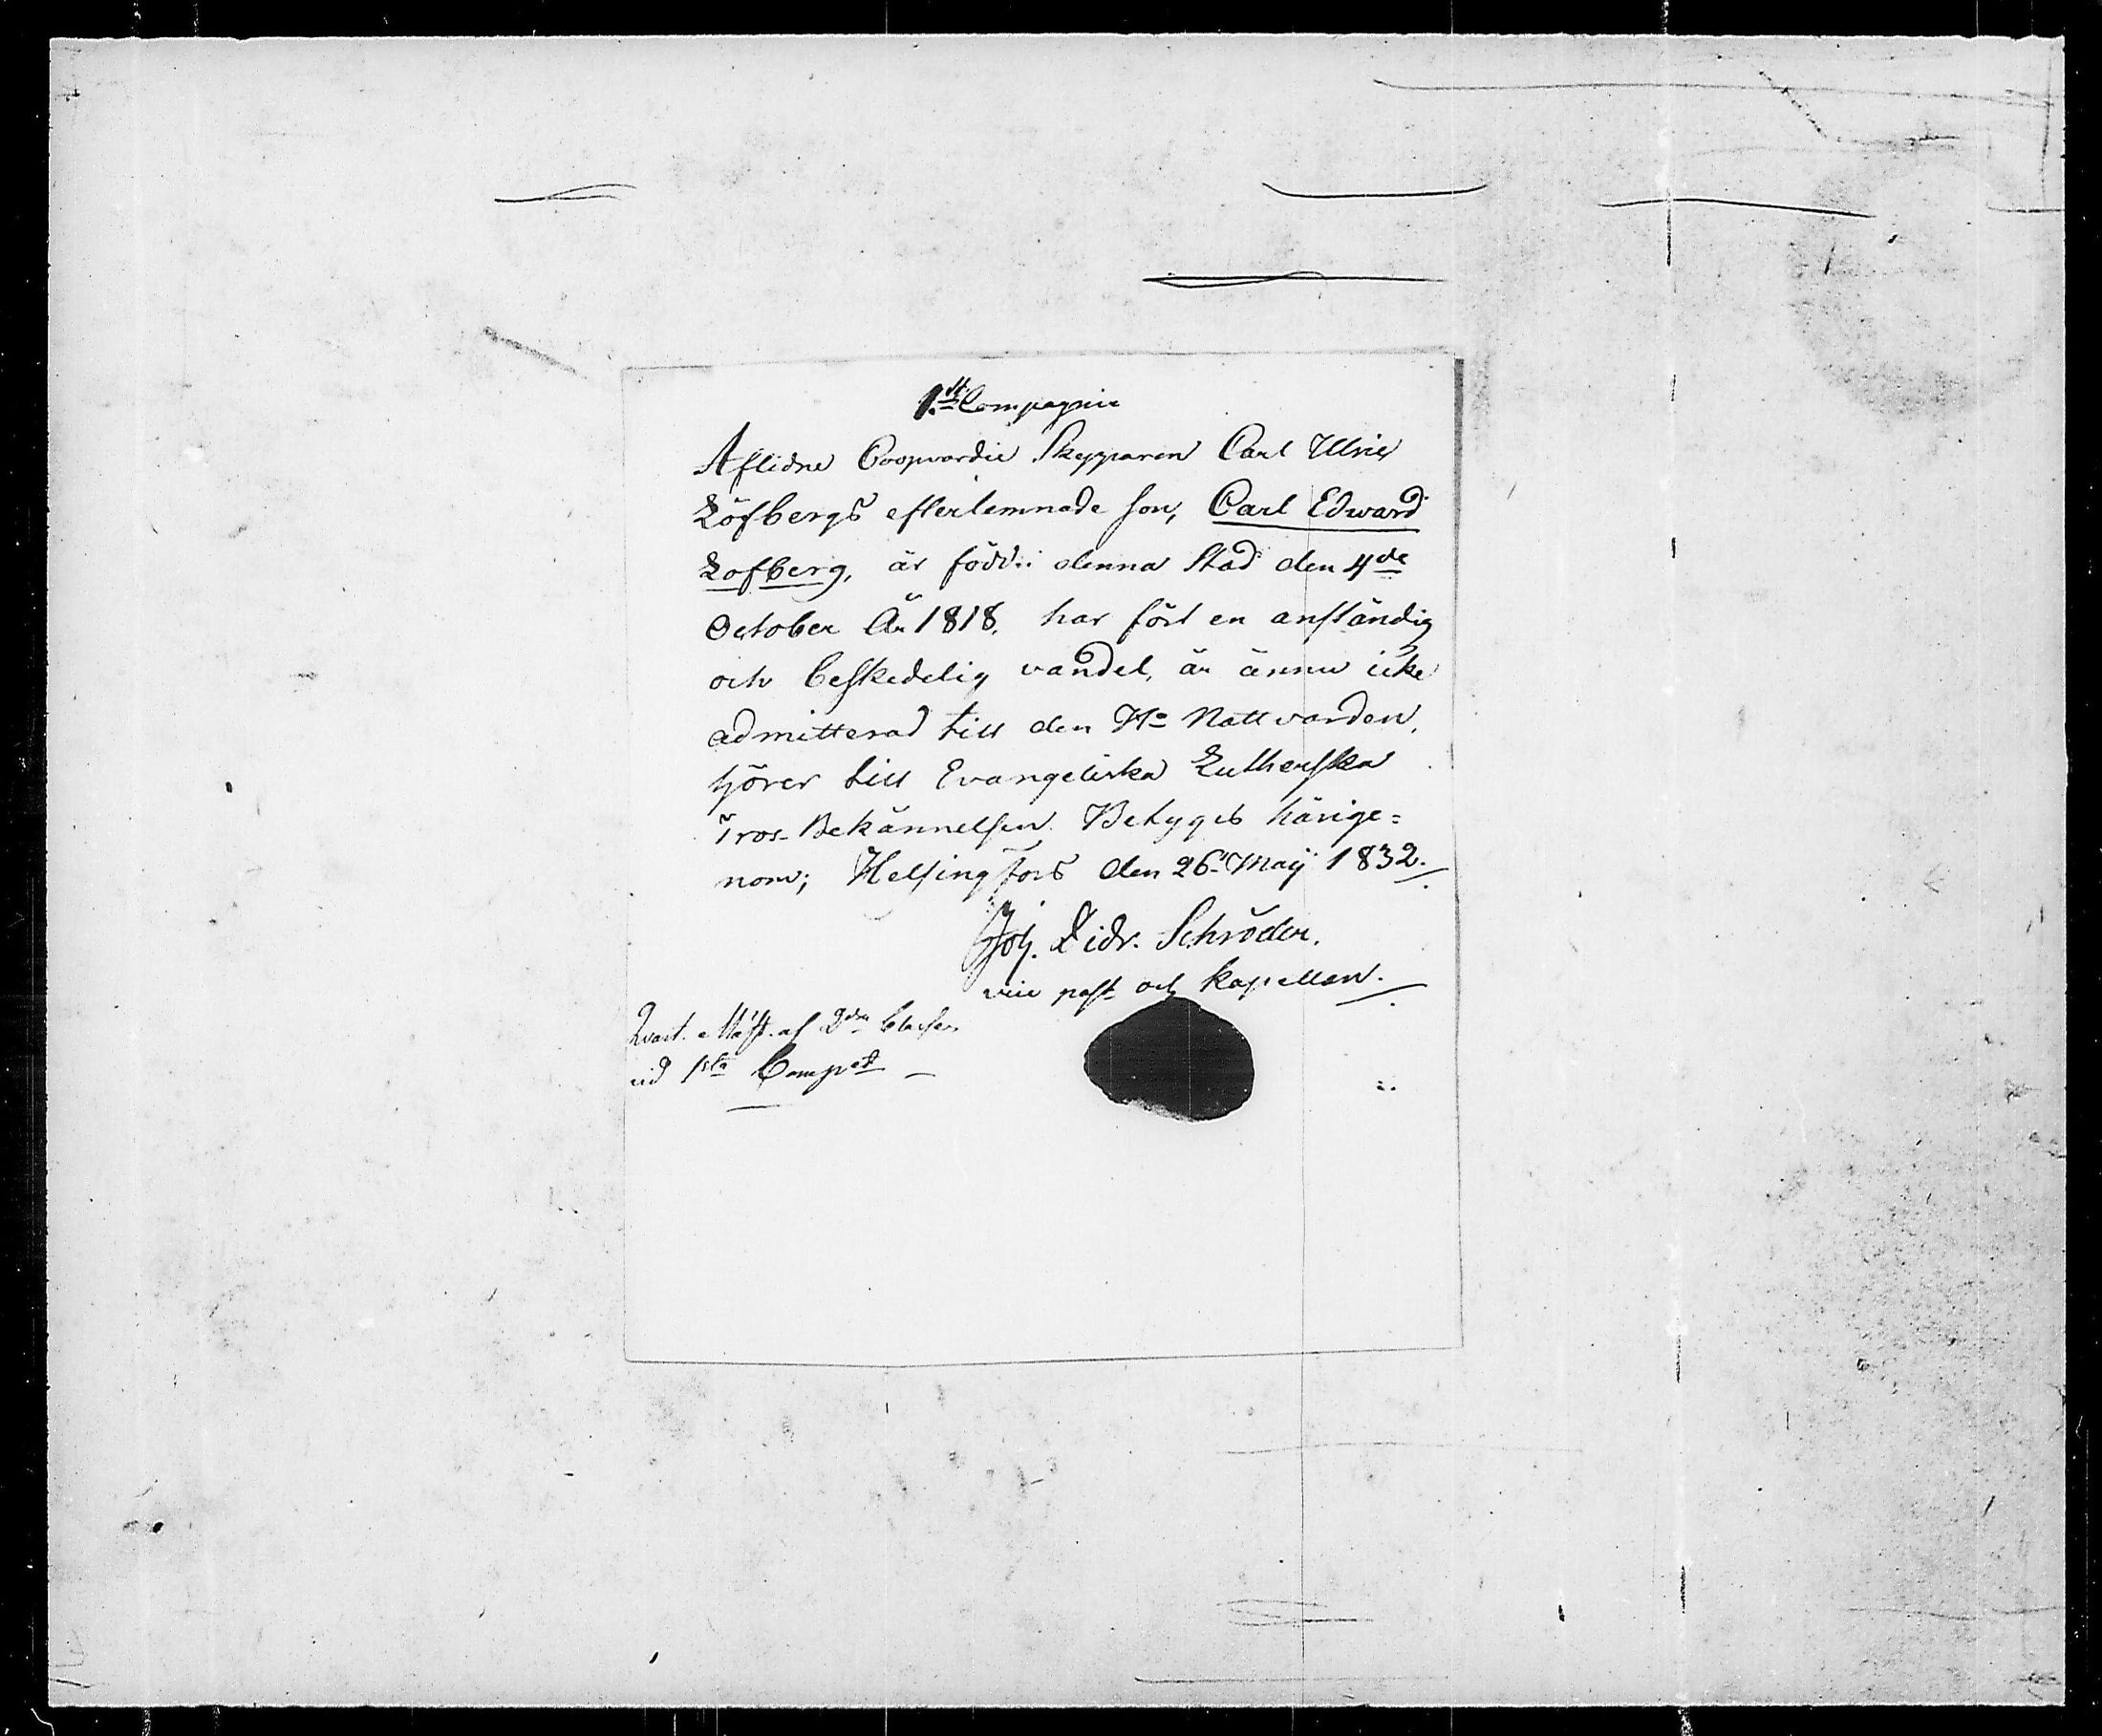 1.st Compagnie
Aflidne Coopvardie Skepparen Carl Ulric
Löfbergs efterlemnade son, Carl Edward
Löfberg, är född i denna Stad den 4de
October År 1818, har fört en anständig
och beskedelig vandel, är ännu icke
admitterad till den H. Nattvarden,
hörer till Evangeliska Lutherska
Tros-Bekännelsen. Betygas härige=
nom; Helsingfors den 26. Maij 1832.
Joh. Didr. Schröder.
vice past. och Kapellan.
Qvart. Mäst. af 2dra Classen
vid 1sta Comp.